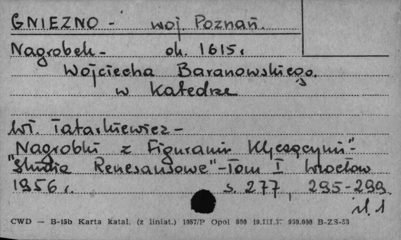 GNIEZNO - woj. Poznań.
Nagrobek - ok. 1615r
Wojciecha Baranowskiego.
w Katedrze
Wł. Tatarkiewicz -
"Nagrobki z Figurami Klęczącymi" -
"Studia Renesansowe" - Tom I Wrocław
1956 r. s. 277, 295-299
il. 1
CWD — B-15b Karta katal. (z liniat.) 1667/P Opol